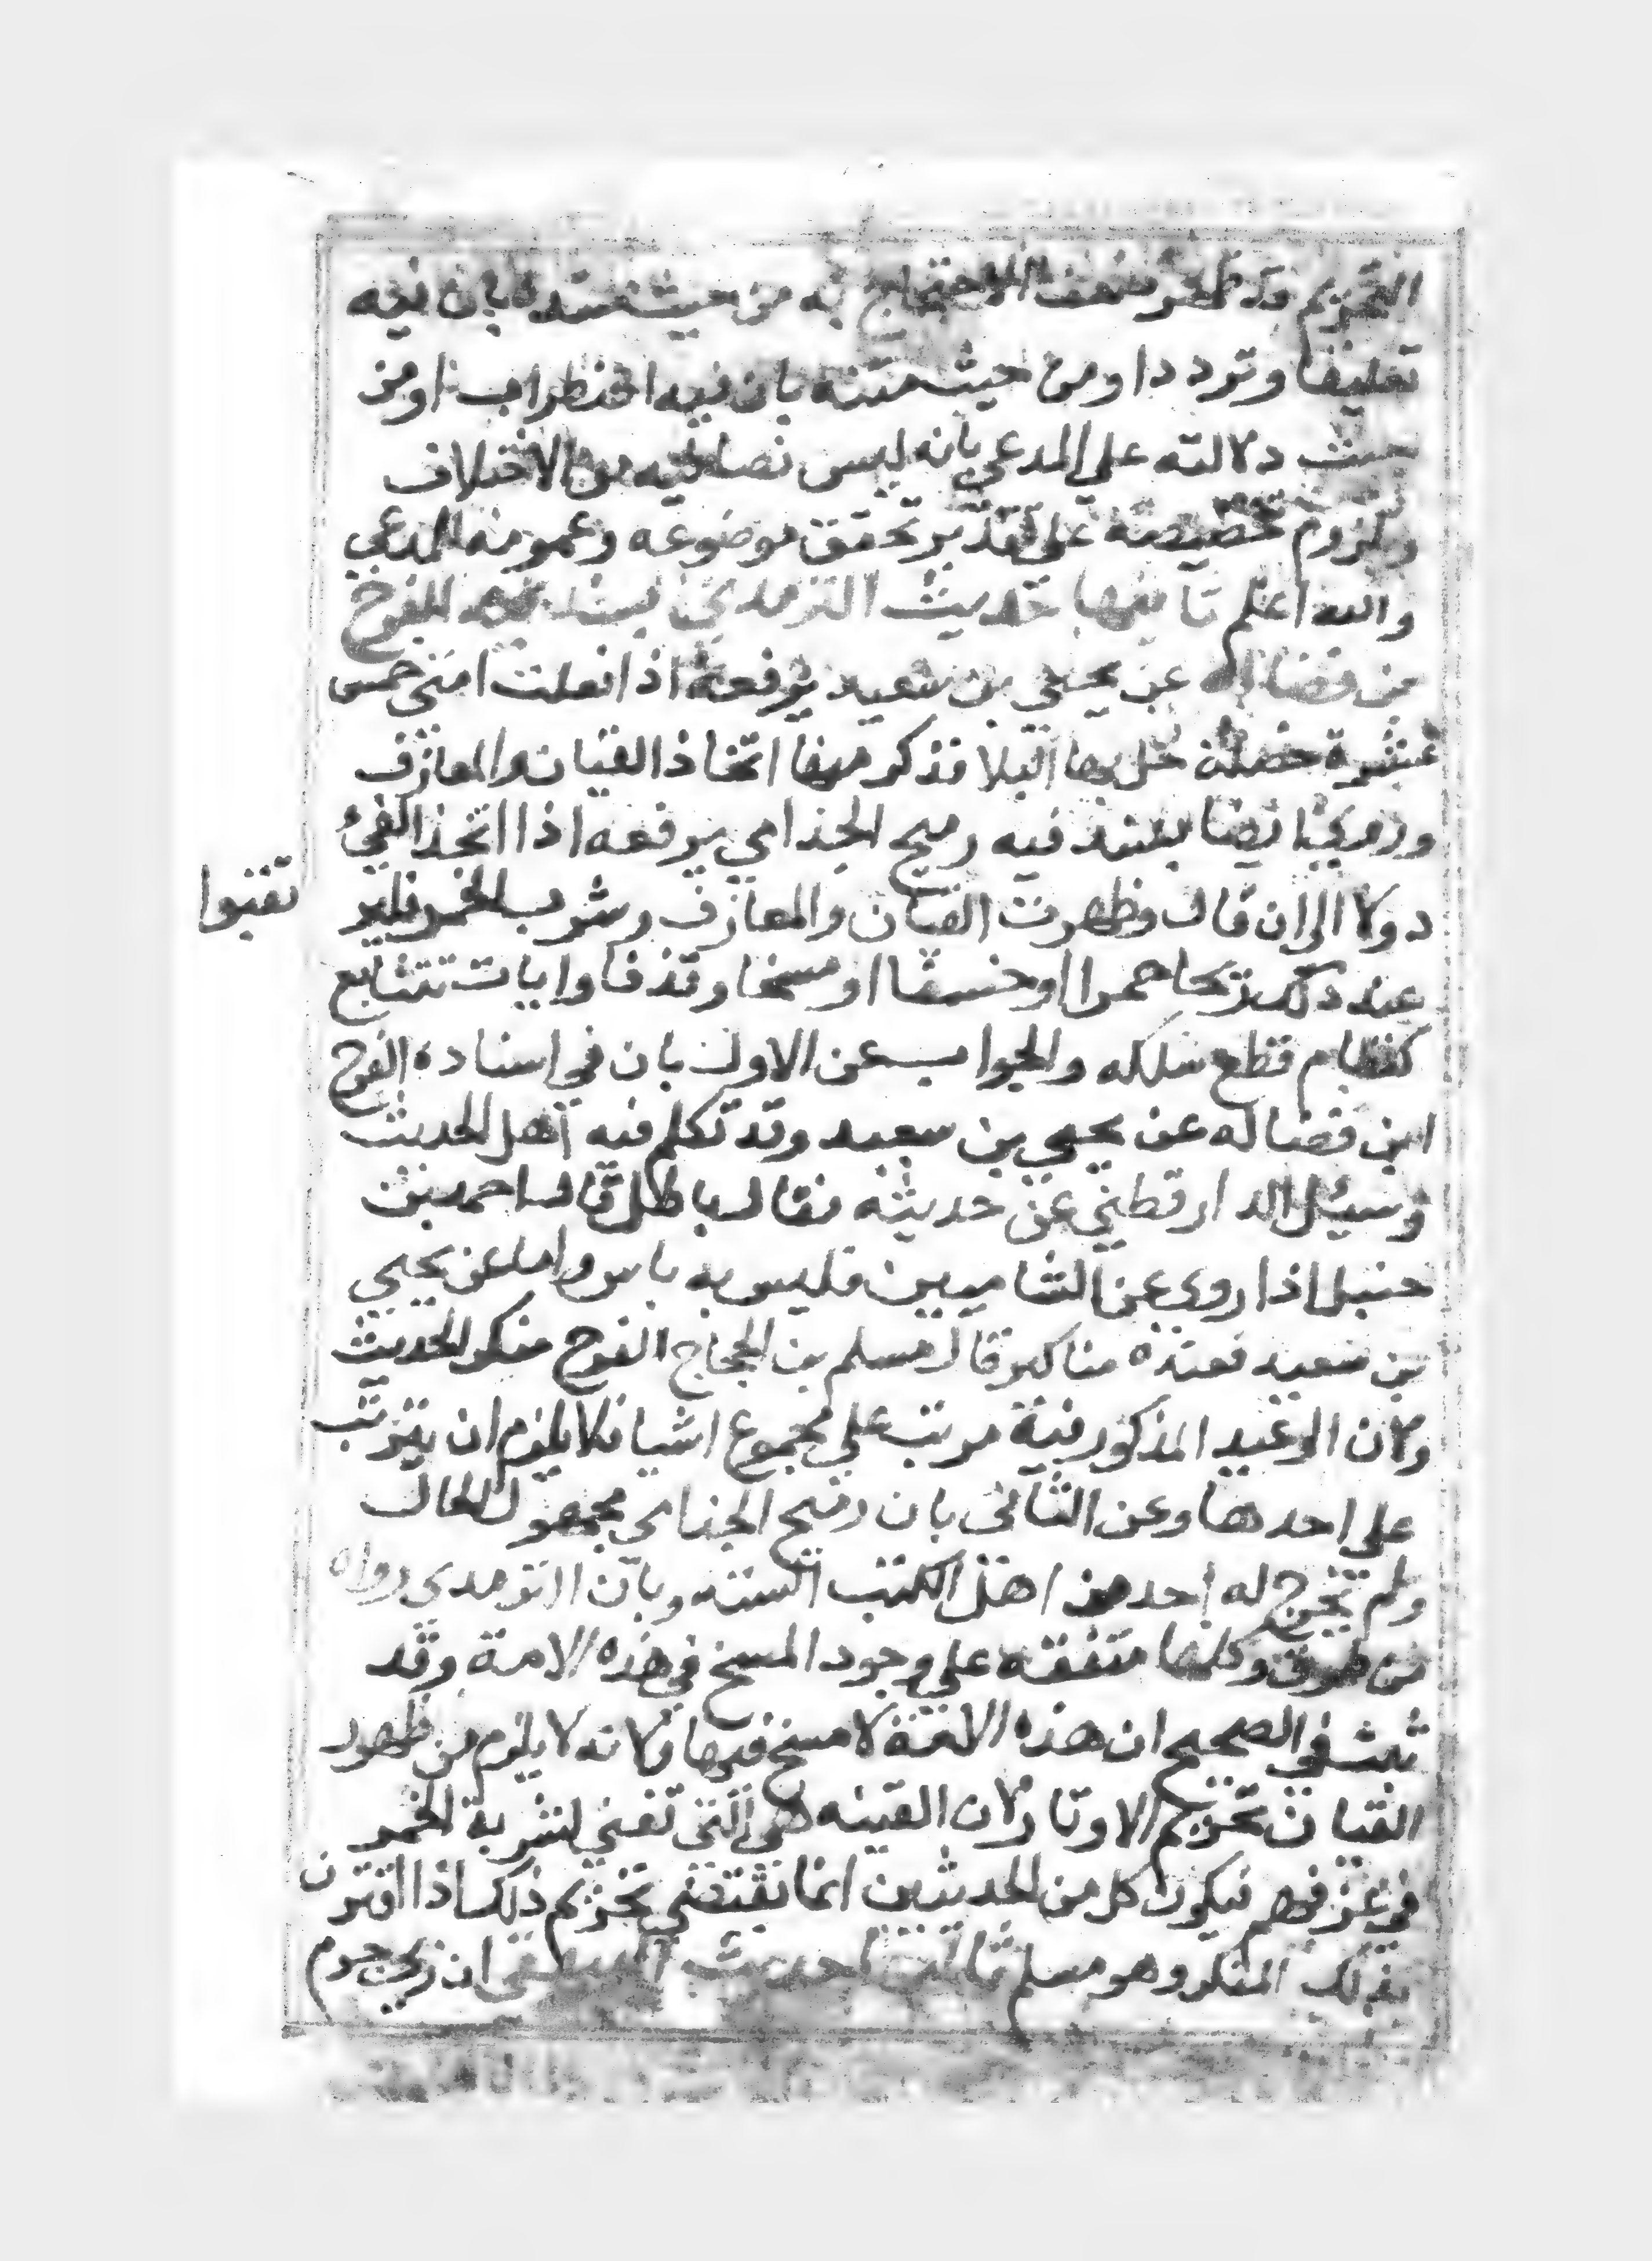 التحريم وقد ظهر ضعف الاحتجاج به من حيث سنده بان فيه
تعليقا وترددا ومن حيث متنه بان فيه اضطرابا ومن
حيث دلالته على المدعي بانه ليس نصا فيه من الاختلاف
ولزوم تخصيصه على تقدير تحقق موضوعه وعمومه للمدعي
والله اعلم ثانيها حديث الترمذي بسند الفرج
من فضاله عن يحيي بن سعيد يرفعه اذا فعلت امتي خمس
عشرة خصلة حل بها البلا فذكر منها اتخاذ القيان والمعازف
وروي ايضا بسند فيه رميح الجذامي يرفعه اذا اتخذ الفيء
دولا الي ان قال وظهرت القيان والمعازف وشرب الخمر فلير
تقبوا
عند ذلك ريحا حمرا اوخسفا اومسخا وقذفا وايات تتتابع
كنظام قطع سلكه والجواب عن الاول بان في اسناده الفرج
ابن فضاله عن يحيي بن سعيد وقد تكلم فيه اهل الحديث
وسيئل الدارقطني عن حديثه فقال باطل قال احمد بن
حنبل اذا روي عن الشاميين فليس به باس واما عن يحيي
بن سعيد فعنده مناكير قال مسلم بن الحجاج الفرج منكر الحديث
ولان الوعيد المذكور فيه مرتب علي مجموع اشيا فلا يلزم ان يترتب
علي احدها وعن الثاني بان رميح الجذامي مجهول الحال
ولم يخرج له احد من اهل الكتب الستة وبان الترمدي رواه
من طرق وكلها متفقه علي وجود المسخ في هذه الامة وقد
ثبت في الصحيح ان هذه الامة لا مسخ فيها ولانه لا يلزم من ظهور
القيان تحريم الاوتار لان القينه هي التي تغني لشربة الخمر
في عرفهم فيكون كل من الحديثين انما يقتضي تحريم ذلك اذا اقترن
بذلك المنكر وهو مسلم ثالثها حديث ان ربي حرم